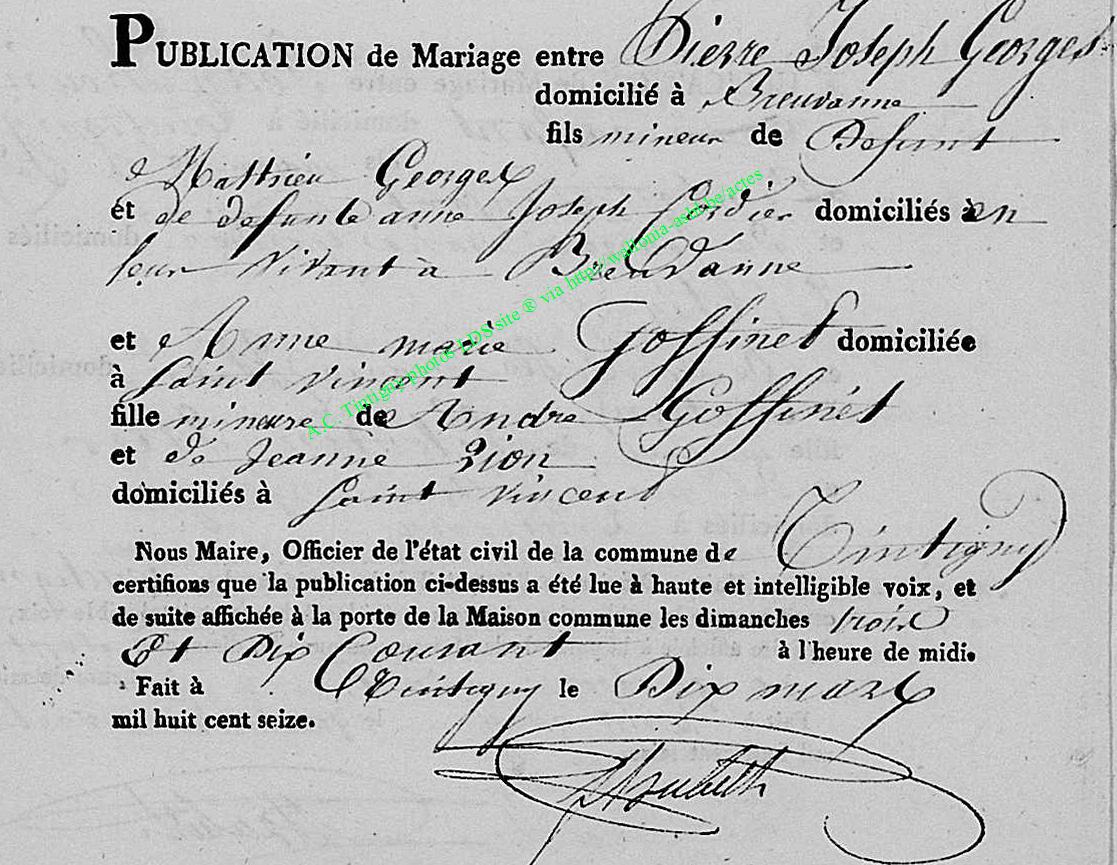 PUBLICATION de Mariage entre Pierre Joseph Georges
domicilié à Breuvanne
fils mineur de Defunt
Mathieu Georges
et de defunte anne Joseph Cordier domiciliés à en
leur vivant à Breuvanne
et Anne marie Goffinet domiciliée
à Saint Vincent
fille mineure de Andre Goffinet
et de Jeanne Lion
domiciliés à Saint Vincent
Nous Maire, Officier de l'état civil de la commune de Tintigny
certifions que la publication ci-dessus a été lue à haute et intelligible voix, et
de suite affichée à la porte de la Maison commune les dimanches trois
Et Dix Courant à l'heure de midi.
Fait à Tintigny le Dix mars
mil huit cent seize.
A.C. Tintigny photos LDS site ® via http://wallonia-asbl.be/actes